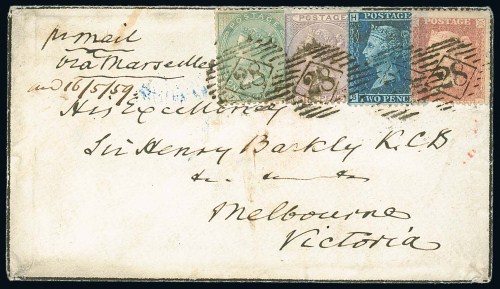 pr mail
via Marseilles
16/5/59
POSTAGE
POSTAGE
POSTAGE
POSTAGE
28
28
28
TWO PENCE
His Excellency
Sir Henry Barkly K.C.B
&c. &c.
Melbourne
Victoria